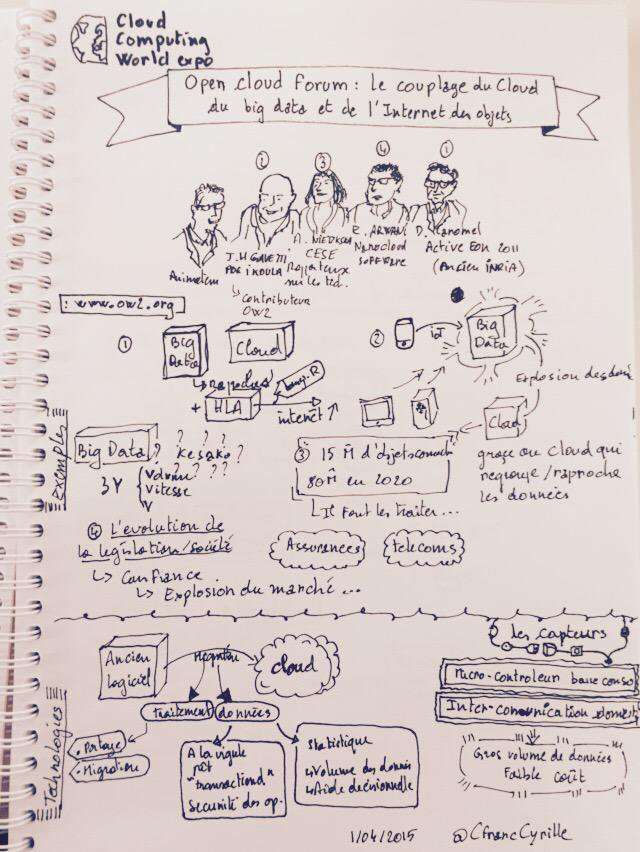 Cloud
Computing
World expo
Open cloud Forum : le couplage du Cloud
du big data et de l'Internet des objets
②
③
④
①
Animateur
J.H GAVETTI
CESE
Rapporteur
sur les
↳ Contributeur
OW2
Nanocloud
SOFTWARE
D. Caromel
Active Eon 2011
(Ancien INRIA)
: www.ow2.org
①
Big
Data
Cloud
+ HLA
internet ↗
②
IoT
Big
Data
Explosion des
Cloud
grace au Cloud qui
regroupe/raproche
les données
exemples
Big Data ? Kesako ?
? ? ?
3V
Volume ? ? ?
Vitesse
V
③ 15 M d'objets connect
80 M en 2020
↳ Il faut les traiter ...
④ L'evolution de
la législation/société
↳ Confiance
↳ Explosion du marché ...
Assurances
telecoms
Technologies
Ancien
logiciel
Cloud
traitement données
• Portage
• Migration
A la virgule
prêt
"transactionel"
Securité des op.
Statistique
↳ Volume des données
↳ Aide décisionnelle
les capteurs
Micro-controleur basse conso
Inter-comunication
Gros volume de données
Faible coût
1/04/2015
@CfrancCyrille